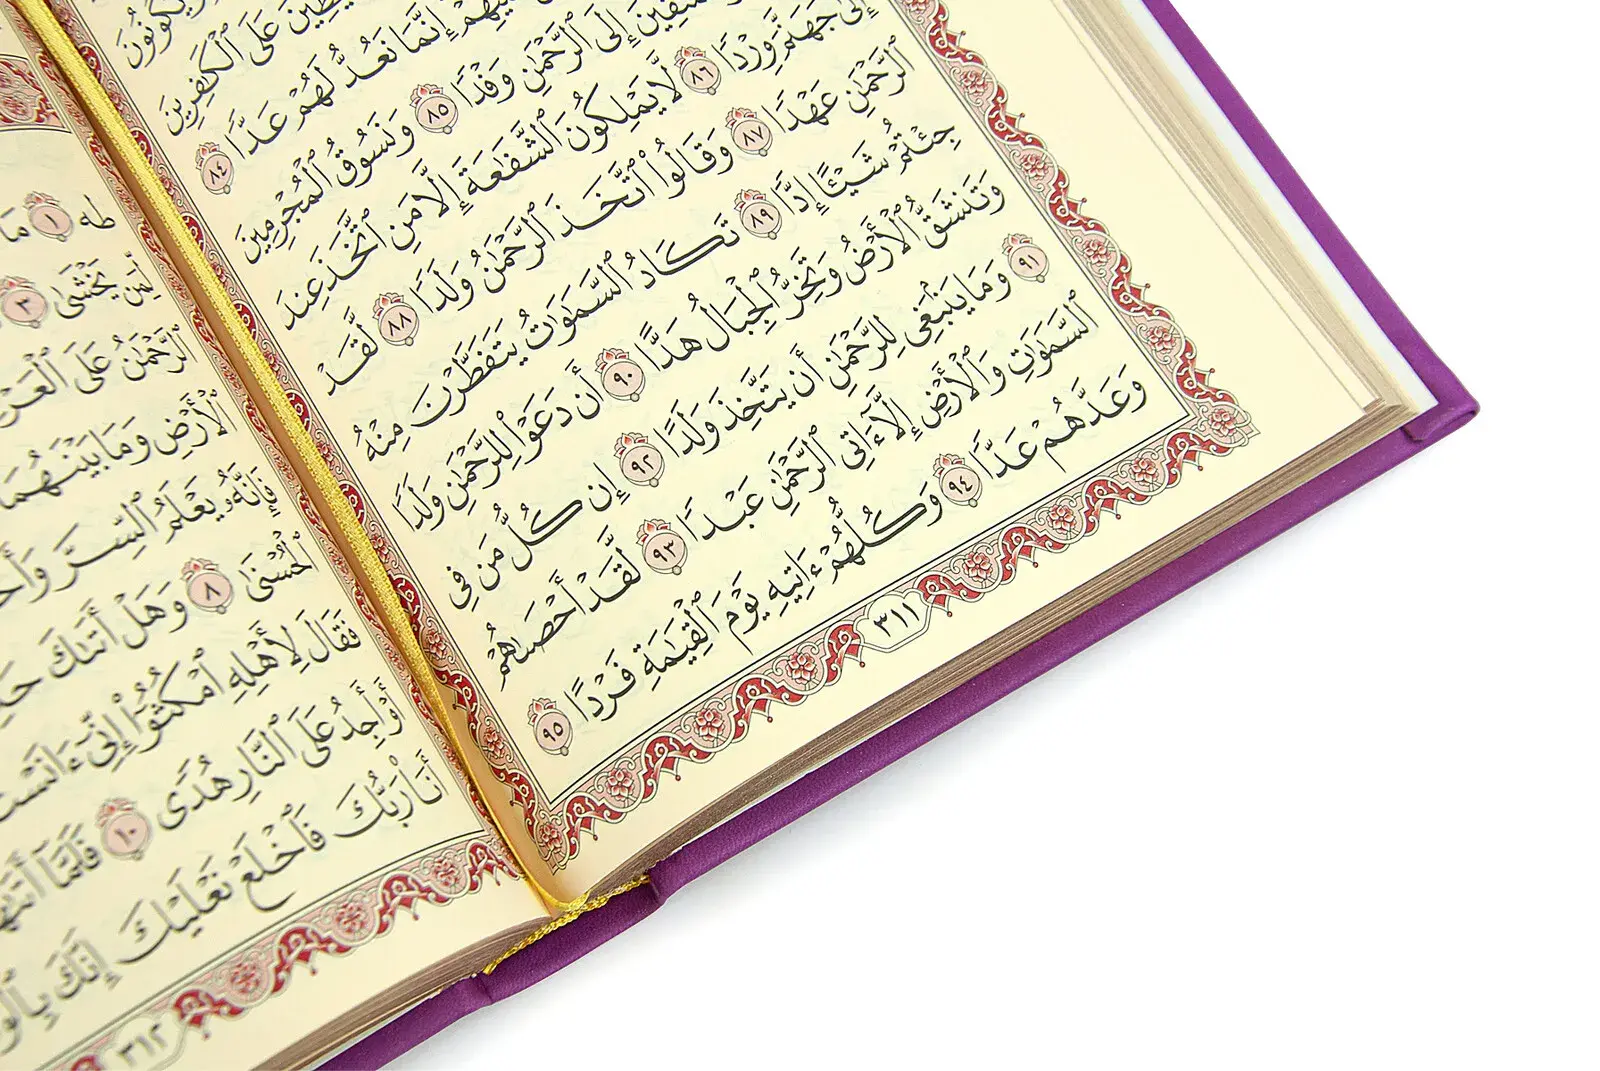 وَيَكُونُونَ
عَلَى ٱلْكَٰفِرِينَ
إِنَّمَا نَعُدُّ لَهُمْ عَدًّا ٨٤
إِلَى ٱلرَّحْمَٰنِ وَفْدًا ٨٥ وَنَسُوقُ ٱلْمُجْرِمِينَ
إِلَىٰ جَهَنَّمَ وِرْدًا ٨٦ لَّا يَمْلِكُونَ ٱلشَّفَٰعَةَ إِلَّا مَنِ ٱتَّخَذَ عِندَ
ٱلرَّحْمَٰنِ عَهْدًا ٨٧ وَقَالُوا۟ ٱتَّخَذَ ٱلرَّحْمَٰنُ وَلَدًا ٨٨ لَّقَدْ
جِئْتُمْ شَيْـًٔا إِدًّا ٨٩ تَكَادُ ٱلسَّمَٰوَٰتُ يَتَفَطَّرْنَ مِنْهُ
وَتَنشَقُّ ٱلْأَرْضُ وَتَخِرُّ ٱلْجِبَالُ هَدًّا ٩٠ أَن دَعَوْا۟ لِلرَّحْمَٰنِ وَلَدًا
٩١ وَمَا يَنۢبَغِى لِلرَّحْمَٰنِ أَن يَتَّخِذَ وَلَدًا ٩٢ إِن كُلُّ مَن فِى
ٱلسَّمَٰوَٰتِ وَٱلْأَرْضِ إِلَّآ ءَاتِى ٱلرَّحْمَٰنِ عَبْدًا ٩٣ لَّقَدْ أَحْصَىٰهُمْ
وَعَدَّهُمْ عَدًّا ٩٤ وَكُلُّهُمْ ءَاتِيهِ يَوْمَ ٱلْقِيَٰمَةِ فَرْدًا ٩٥
٣١١
طه ١ مَآ
لِّمَن يَخْشَىٰ ٣
ٱلرَّحْمَٰنُ عَلَى ٱلْعَرْ
ٱلْأَرْضِ وَمَا بَيْنَهُمَا
فَإِنَّهُۥ يَعْلَمُ ٱلسِّرَّ وَأَخْ
ٱلْحُسْنَىٰ ٨ وَهَلْ أَتَىٰكَ حَدِ
فَقَالَ لِأَهْلِهِ ٱمْكُثُوٓا۟ إِنِّىٓ ءَانَسْتُ
أَوْ أَجِدُ عَلَى ٱلنَّارِ هُدًى ١٠ فَلَمَّآ أَتَىٰهَا
أَنَا۠ رَبُّكَ فَٱخْلَعْ نَعْلَيْكَ إِنَّكَ بِٱلْوَ
٣١٢